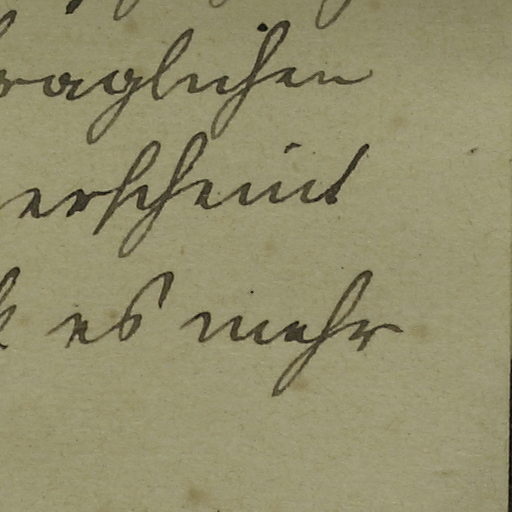 raglichen
erscheint
es mehr